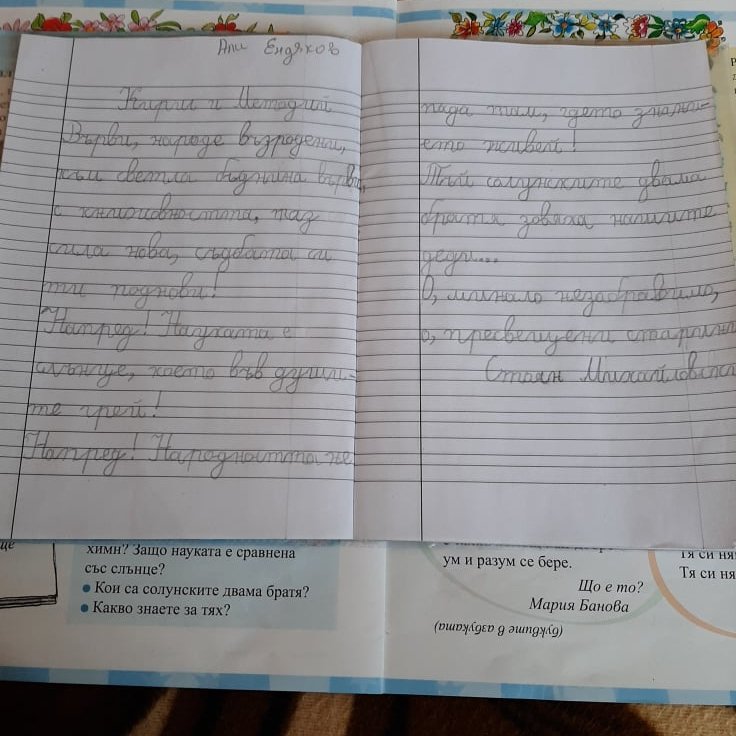 Али Ендяков
Кирил и Методий
Върви, народе възродени,
към светла бъднина върви,
с книжовността, таз
сила нова, съдбата си
ти поднови!
Напред! Науката е
слънце, което във души-
те грей!
Напред! Народността не
пада там, гдето знани-
ето живей!
Тъй солунските двама
братя зовяха нашите
деди...
О, минало незабравимо,
о, пресвещени старини
Стоян Михайловски
химн? Защо науката е сравнена
със слънце?
• Кои са солунските двама братя?
• Какво знаете за тях?
ум и разум се бере.
Що е то?
Мария Банова
(буквите в азбуката)
Тя си ня